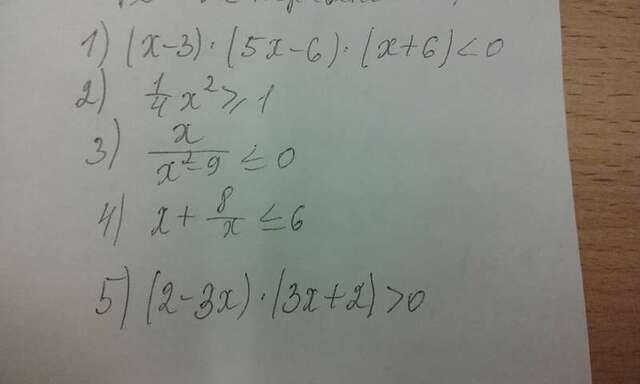 1) (x-3)·(5x-6)·(x+6)<0
2) 1/4 x² ≥ 1
3) x/(x²-9) ≤ 0
4) x + 8/x ≤ 6
5) (2-3x)·(3x+2)>0